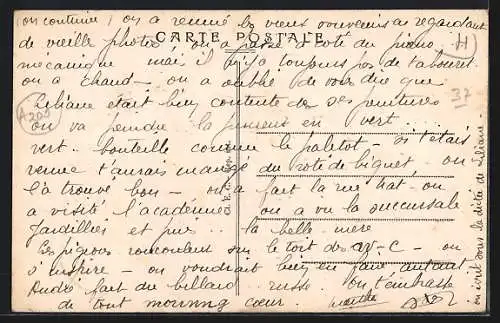 (on continue) on a remué les vieux souvenirs a regardant
de vieille photos on a passé a coté du piano
CARTE POSTALE
H
mécanique mais il n'y a toujours pas de tabouret
on a chaud - on a oublié de vous dire que
Liliane était bien contente de ses peintures
37
A205
on va peindre la en vert
vert bouteille comme le paletot - si t'étais
venue t'aurais mangé du roti de biquet, on
l'a trouvé bon - on a fait la rue hat - on
a visité l'académie on a vu la succursale
Jardillier et puis .. la belle-mère
Les pigeons roucoulent sur le toit des W-C - on
s'inspire - on voudrait bien en faire autant
André fait du billard russe on t'embrasse
de tout mourning cœur.
on écrit sous la dictée de Liliane.